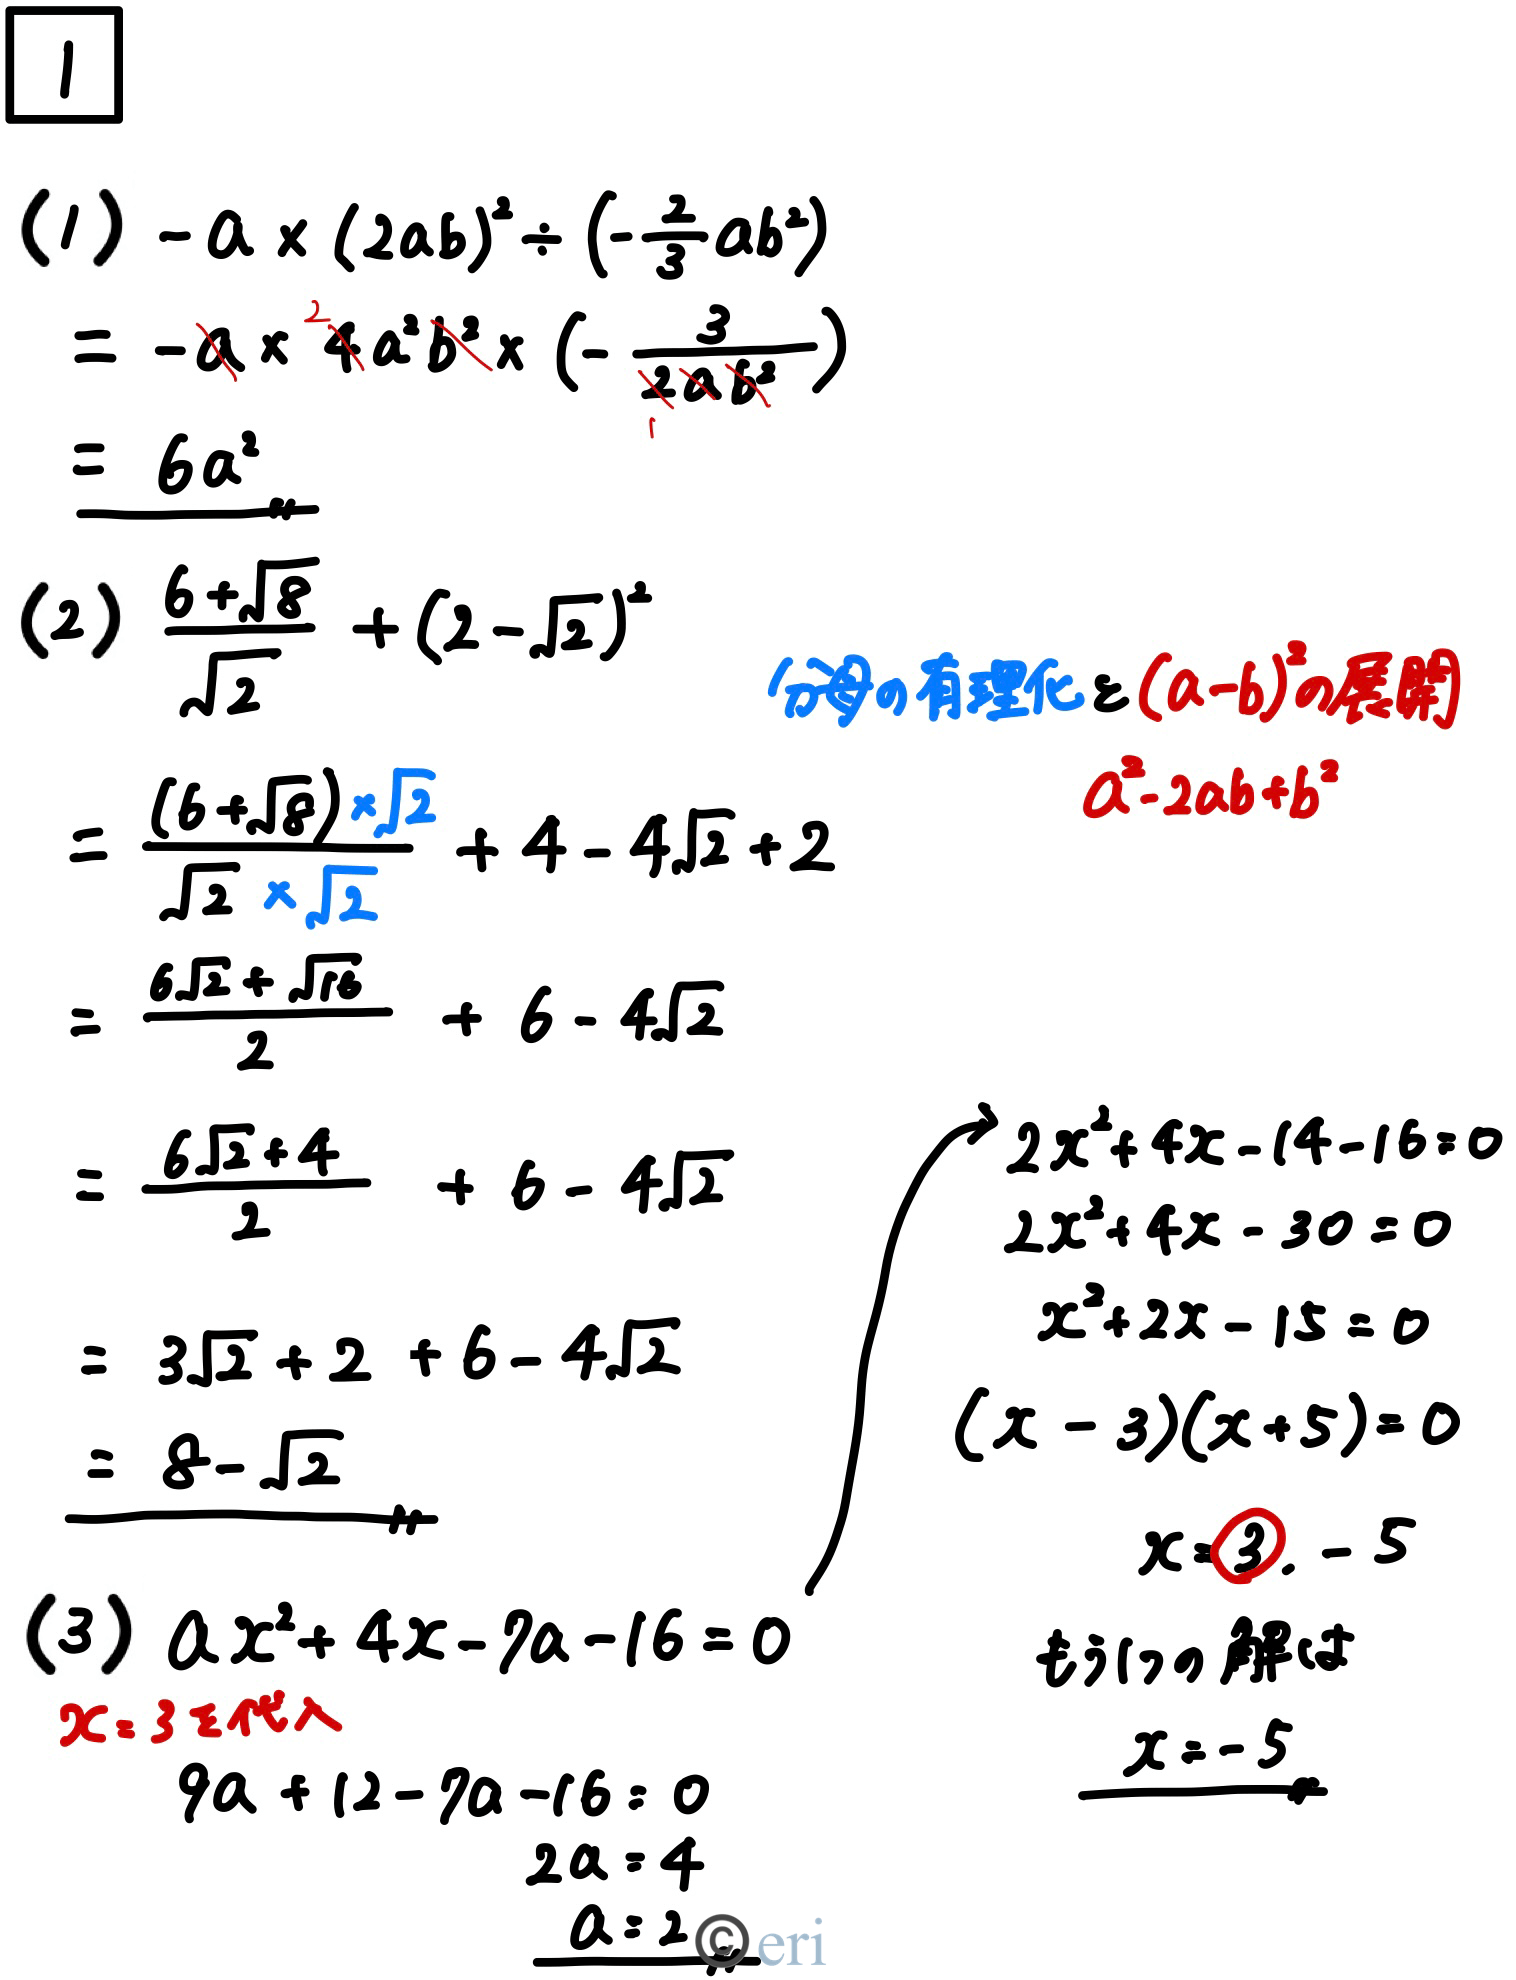 1
(1) -a × (2ab)² ÷ (-2/3 ab²)
= -a × 4a²b² × (-3/2ab²)
2
1
= 6a²
(2) (6+√8)/√2 + (2-√2)²
分母の有理化と(a-b)²の展開
a²-2ab+b²
= (6+√8)×√2/√2×√2 + 4 - 4√2 + 2
= (6√2+√16)/2 + 6 - 4√2
= (6√2+4)/2 + 6 - 4√2
= 3√2 + 2 + 6 - 4√2
= 8 - √2
(3) ax² + 4x - 7a - 16 = 0
x=3を代入
9a + 12 - 7a - 16 = 0
2a = 4
a = 2
2x² + 4x - 14 - 16 = 0
2x² + 4x - 30 = 0
x² + 2x - 15 = 0
(x - 3)(x + 5) = 0
x = 3, -5
もう1つの解は
x = -5
© eri